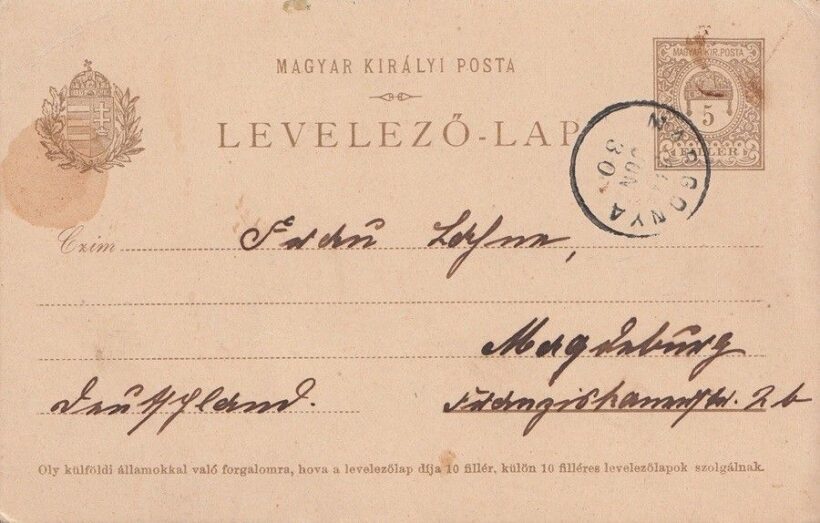 MAGYAR KIRÁLYI POSTA
LEVELEZŐ-LAP
MAGYAR KIR. POSTA
5
FILLÉR
JUN
30
Czim Frau
Magdeburg
Deutschland. Franziskanerstr. 2b
Oly külföldi államokkal való forgalomra, hova a levelezőlap díja 10 fillér, külön 10 filléres levelezőlapok szolgálnak.